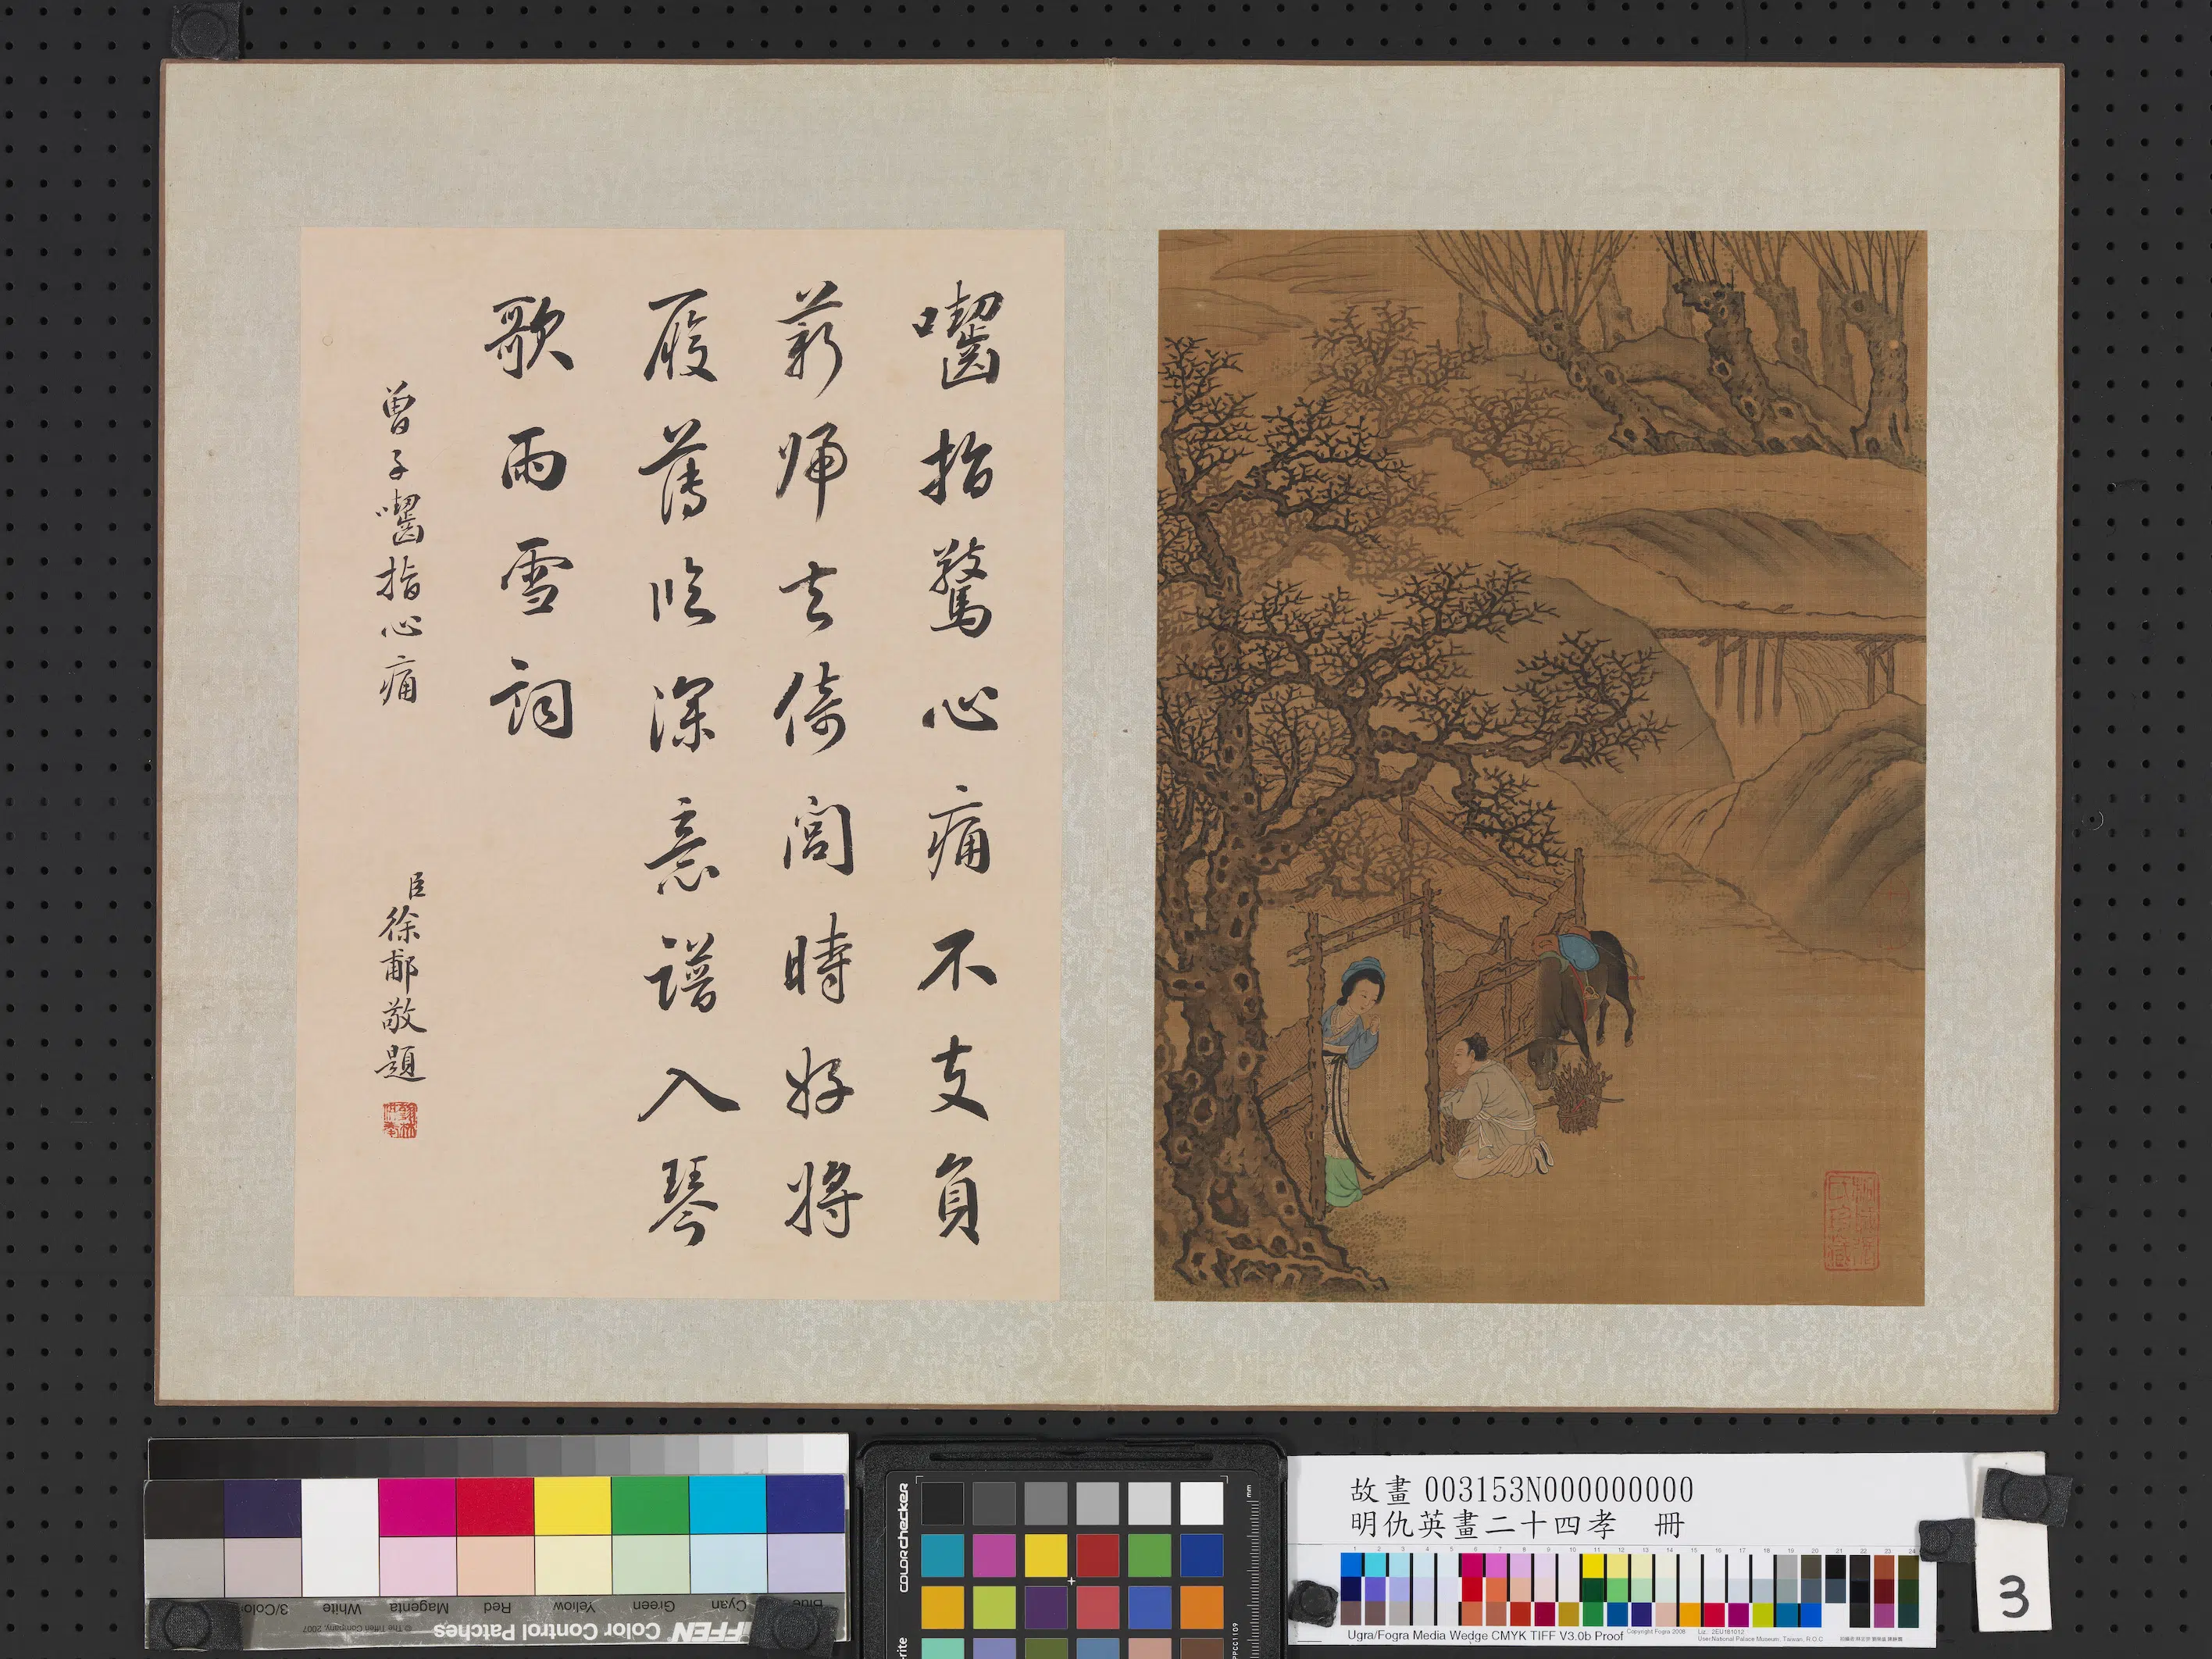 囓指驚心痛不支負
薪歸去倚閭時好將
履薄臨深意譜入琴
歌雨雪詞
曾子囓指心痛
臣徐郙敬題
故畫 003153N000000000
明仇英畫二十四孝 冊
3
colorchecker
mm
3/Color
White
Magenta
Red
Yellow
Green
Cyan
Blue
© The Tiffen Company, 2007
TIFFEN Color Control Patches
Ugra/Fogra Media Wedge CMYK TIFF V3.0b Proof
Copyright Fogra 2008
User:National Palace Museum, Taiwan, R.O.C